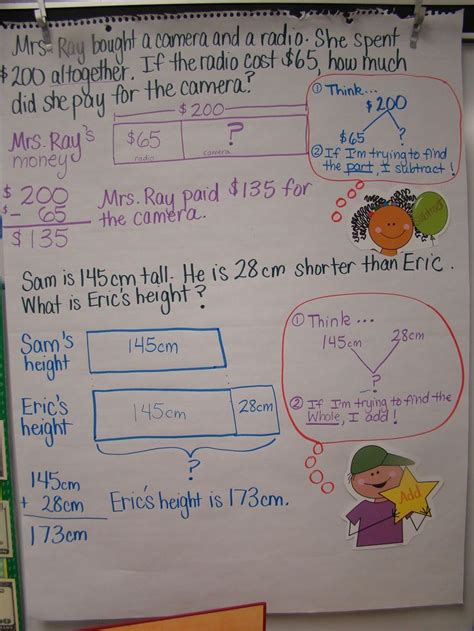 Mrs. Ray bought a camera and a radio. She spent
$200 altogether. If the radio cost $65, how much
did she pay for the camera?
$200
Mrs. Ray's
money
$65
radio
?
camera
① Think...
$200
$65 ?
② If I'm trying to find
the part, I subtract!
$ 200
- 65
$ 135
Mrs. Ray paid $135 for
the camera.
Subtract
Sam is 145cm tall. He is 28cm shorter than Eric.
What is Eric's height?
Sam's
height
145cm
① Think...
145cm 28cm
?
② If I'm trying to find the
Whole, I add!
Eric's
height
145cm
28cm
?
145cm
+ 28cm
173cm
Eric's height is 173cm.
Add